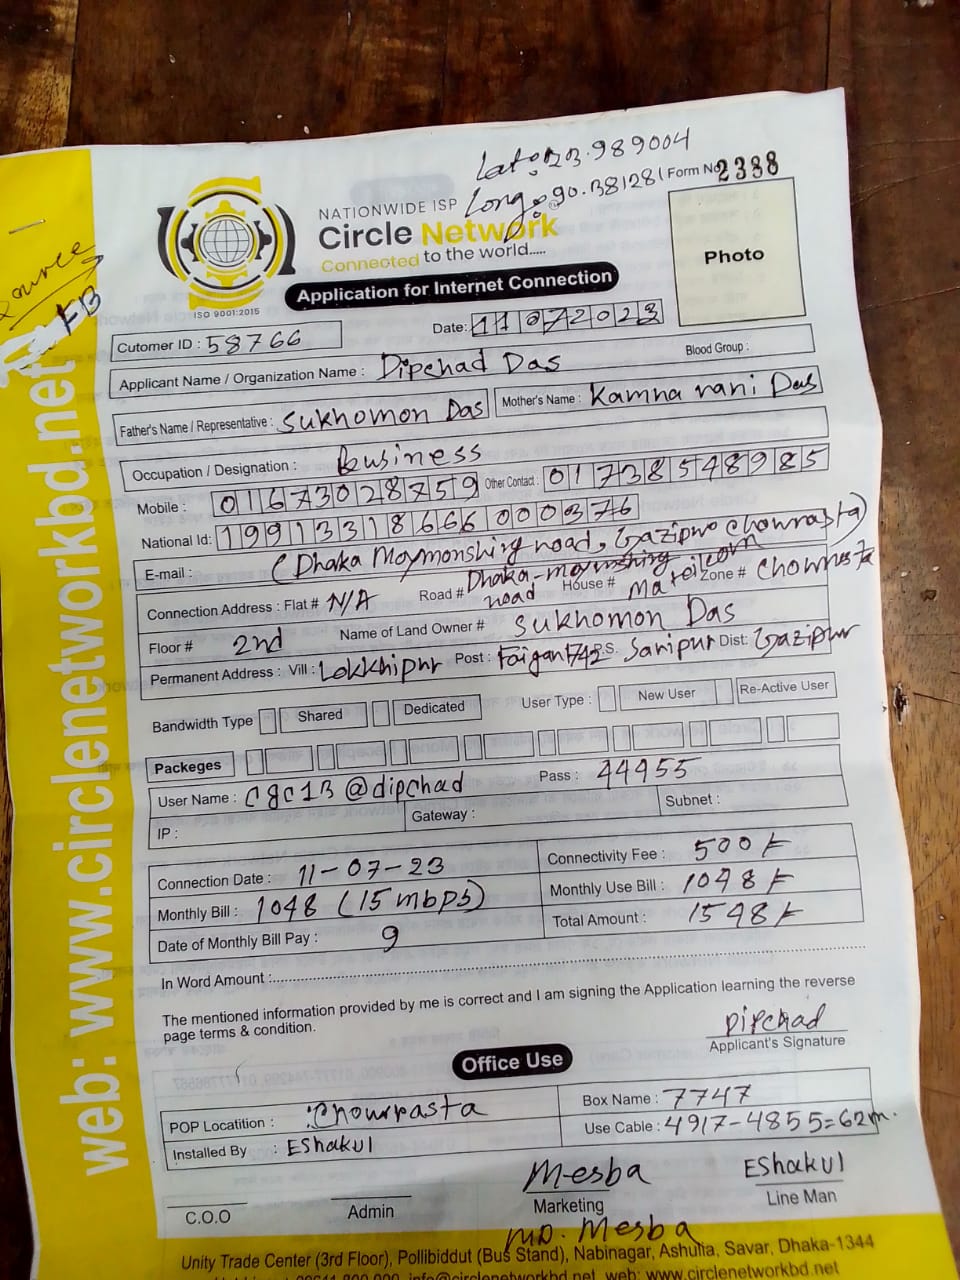 Lat: 23.989004
Long: 90.381281 Form No 2388
NATIONWIDE ISP
Circle Network
Connected to the world.....
ISO 9001:2015
Application for Internet Connection
Photo
Source
FB
web: www.circlenetworkbd.net
Cutomer ID : 58766 Date: 11072023
Applicant Name / Organization Name : Dipchad Das Blood Group :
Father's Name / Representative : Sukhomon Das Mother's Name : Kamna rani Das
Occupation / Designation : Business
Mobile : 01673028759 Other Contact : 01738548985
National Id: 19913318666000376
E-mail : (Dhaka Moymonshing road, Gazipur chowrasta)
Connection Address : Flat # N/A Road # Dhaka-moymnshing road House # Zone # Chowrasta
Floor # 2nd Name of Land Owner # Sukhomon Das
Permanent Address : Vill : Lokkhipur Post : P.S. Dist: Gazipur
Bandwidth Type Shared Dedicated User Type : New User Re-Active User
Packeges
User Name : C8C1B@dipchad Pass : 44955
IP : Gateway : Subnet :
Connection Date : 11-07-23 Connectivity Fee : 500/-
Monthly Bill : 1048 (15 mbps) Monthly Use Bill : 1048/-
Date of Monthly Bill Pay : 9 Total Amount : 1548/-
In Word Amount :
The mentioned information provided by me is correct and I am signing the Application learning the reverse
page terms & condition.
Dipchad
Applicant's Signature
Office Use
POP Locatition : Chowrasta Box Name : 7747
Installed By : EShakul Use Cable : 4917-4855=62m.
C.O.O Admin Mesba Marketing EShakul Line Man
MD. Mesba
Unity Trade Center (3rd Floor), Pollibiddut (Bus Stand), Nabinagar, Ashulia, Savar, Dhaka-1344
info@circlenetworkbd.net, web: www.circlenetworkbd.net